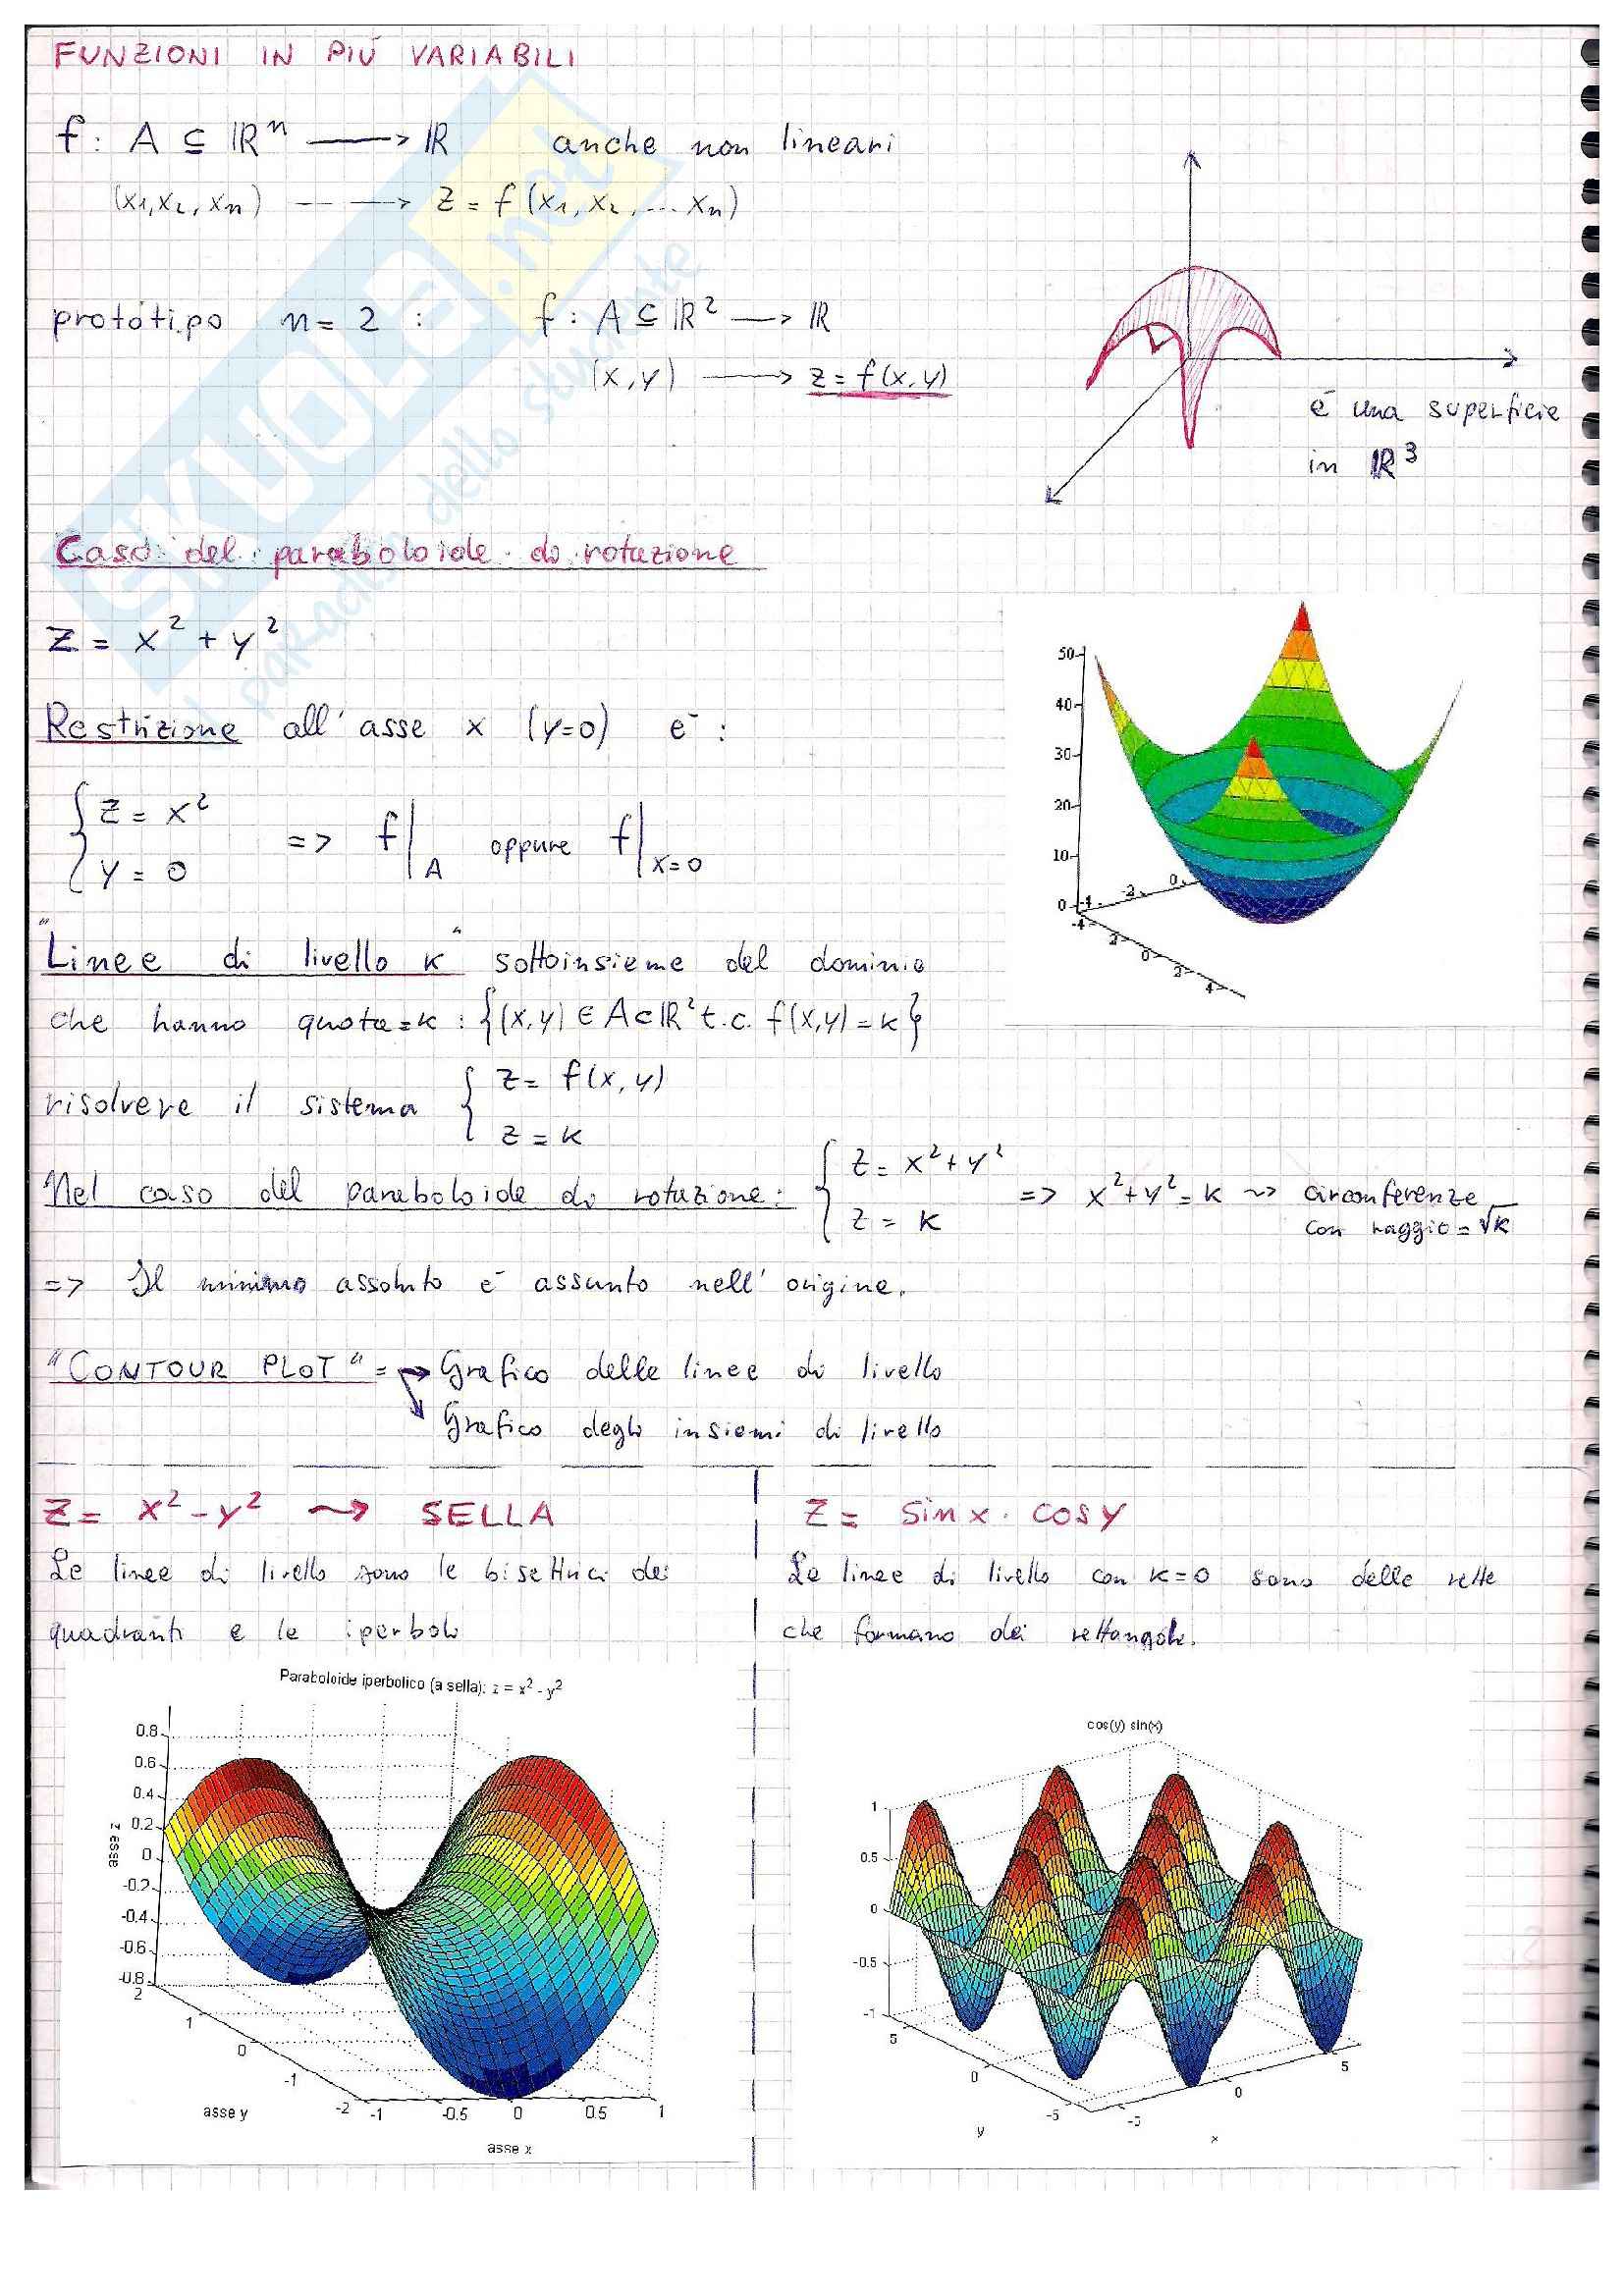 FUNZIONI IN PIÙ VARIABILI
f: A ⊆ ℝⁿ ⟶ ℝ anche non lineari
(x₁, x₂, xₙ) ---→ z = f(x₁, x₂, ... xₙ)
prototipo n = 2 : f: A ⊆ ℝ² ⟶ ℝ
(x,y) ⟶ z = f(x,y)
è una superficie
in ℝ³
Caso del paraboloide di rotazione
z = x² + y²
Restrizione all'asse x (y=0) è :
{ z = x²
y = 0 => f|A oppure f|x=0
"Linee di livello k" sottoinsieme del dominio
che hanno quota = k : {(x,y) ∈ A ⊂ ℝ² t.c. f(x,y) = k}
risolvere il sistema { z = f(x,y)
z = k
Nel caso del paraboloide di rotazione: { z = x² + y²
z = k => x² + y² = k ~> circonferenze
con raggio = √k
=> Il minimo assoluto è assunto nell'origine.
"CONTOUR PLOT" = → Grafico delle linee di livello
↘ Grafico degli insiemi di livello
50
40
30
20
10
0
-4 -2 0
-4 2 0 2 4
z = x² - y² ~> SELLA
Le linee di livello sono le bisettrici dei
quadranti e le iperboli
Paraboloide iperbolico (a sella): z = x² - y²
0.8
0.6
0.4
0.2
0
-0.2
-0.4
-0.6
-0.8
asse z
2 1 0 -1 -2
asse y
-1 -0.5 0 0.5 1
asse x
z = sin x · cos y
Le linee di livello con k=0 sono delle rette
che formano dei rettangoli.
cos(y) sin(x)
1
0.5
0
-0.5
-1
5 0 -5
y
-5 0 5
x
SKUOLA.net
il paradiso dello studente